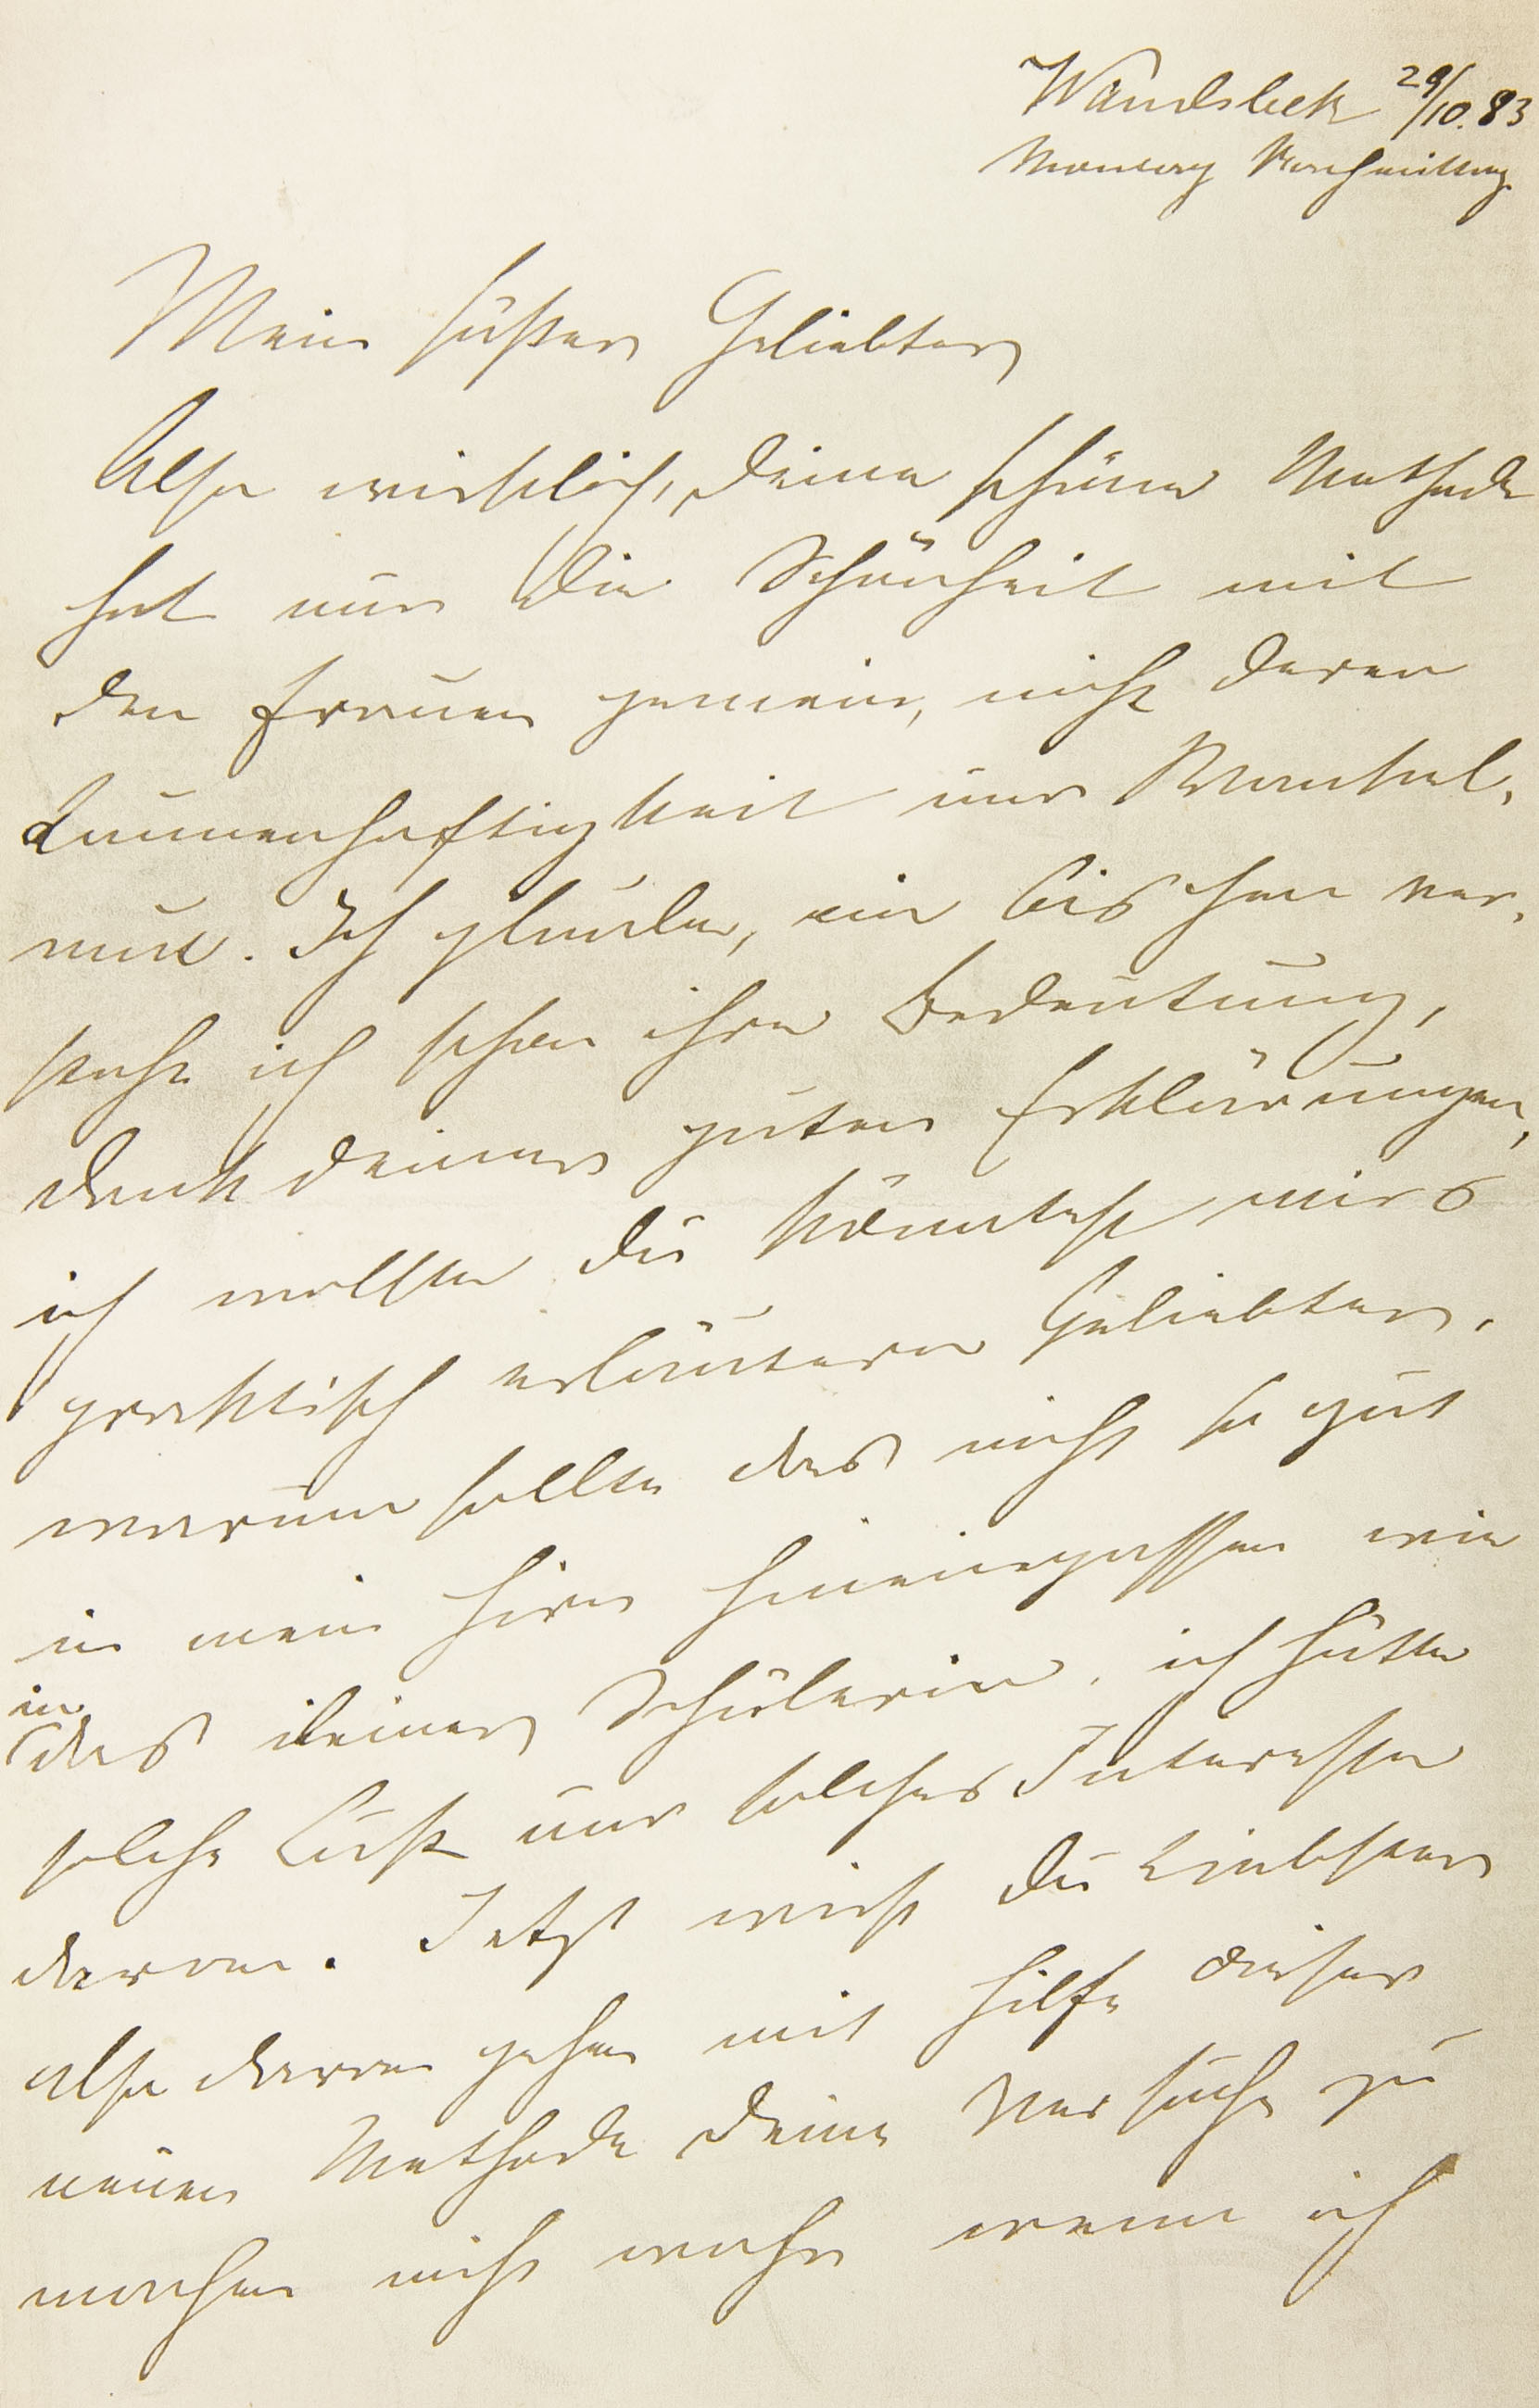 Wandsbek 29/10.83
Montag Nachmittag.
Mein süßer Geliebter
Also wirklich, Deine schöne Methode
hat nur die Schönheit mit
den Frauen gemein, nicht deren
Launenhaftigkeit und Wankel-
mut. Ich glaube, ein bischen ver-
stehe ich schon ihre Bedeutung,
dank Deiner guten Erklärungen,
ich wollte Du könntest mirs
praktisch erläutern Geliebter,
warum sollte das nicht so gut
in mein Hirn hineinpassen wie
in
das Deiner Schülerin, ich hätte
solche Lust und solches Interesse
daran. Jetzt wirst Du Liebster
also daran gehen mit Hilfe dieser
neuen Methode Deine Versuche zu
machen nicht wahr wenn ich